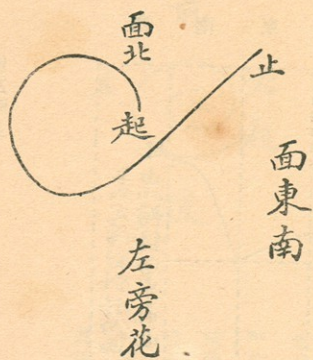 止
面東南
面北
起
左旁花